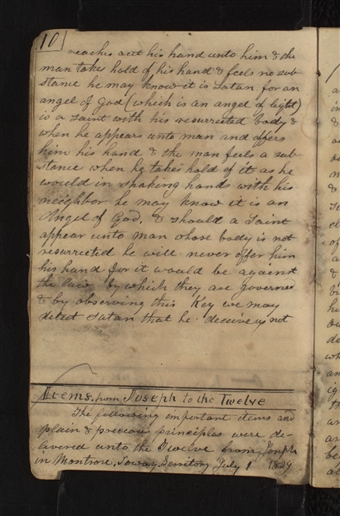 10
reaches out his hand unto him & the
man takes hold of his hand & feels no sub-
stance he may know it is Satan for an
angel of God (which is an angel of light)
is a Saint with his resurrected body &
when he appears unto man and offers
him his hand & the man feels a sub-
stance when he takes hold of it as he
would in shaking hands with his
neighbor he may know it is an
Angel of God, & should a Saint
appear unto man whose body is not
resurrected he will never offer him
his hand for it would be against
the law by which they are governed
& by observing this Key we may
detect Satan that he deceive us not
Items from Joseph to the Twelve
The following important items and
plain & precious principles were de-
livered unto the Twelve from Joseph
in Montrose, Ioway Territory July 1839